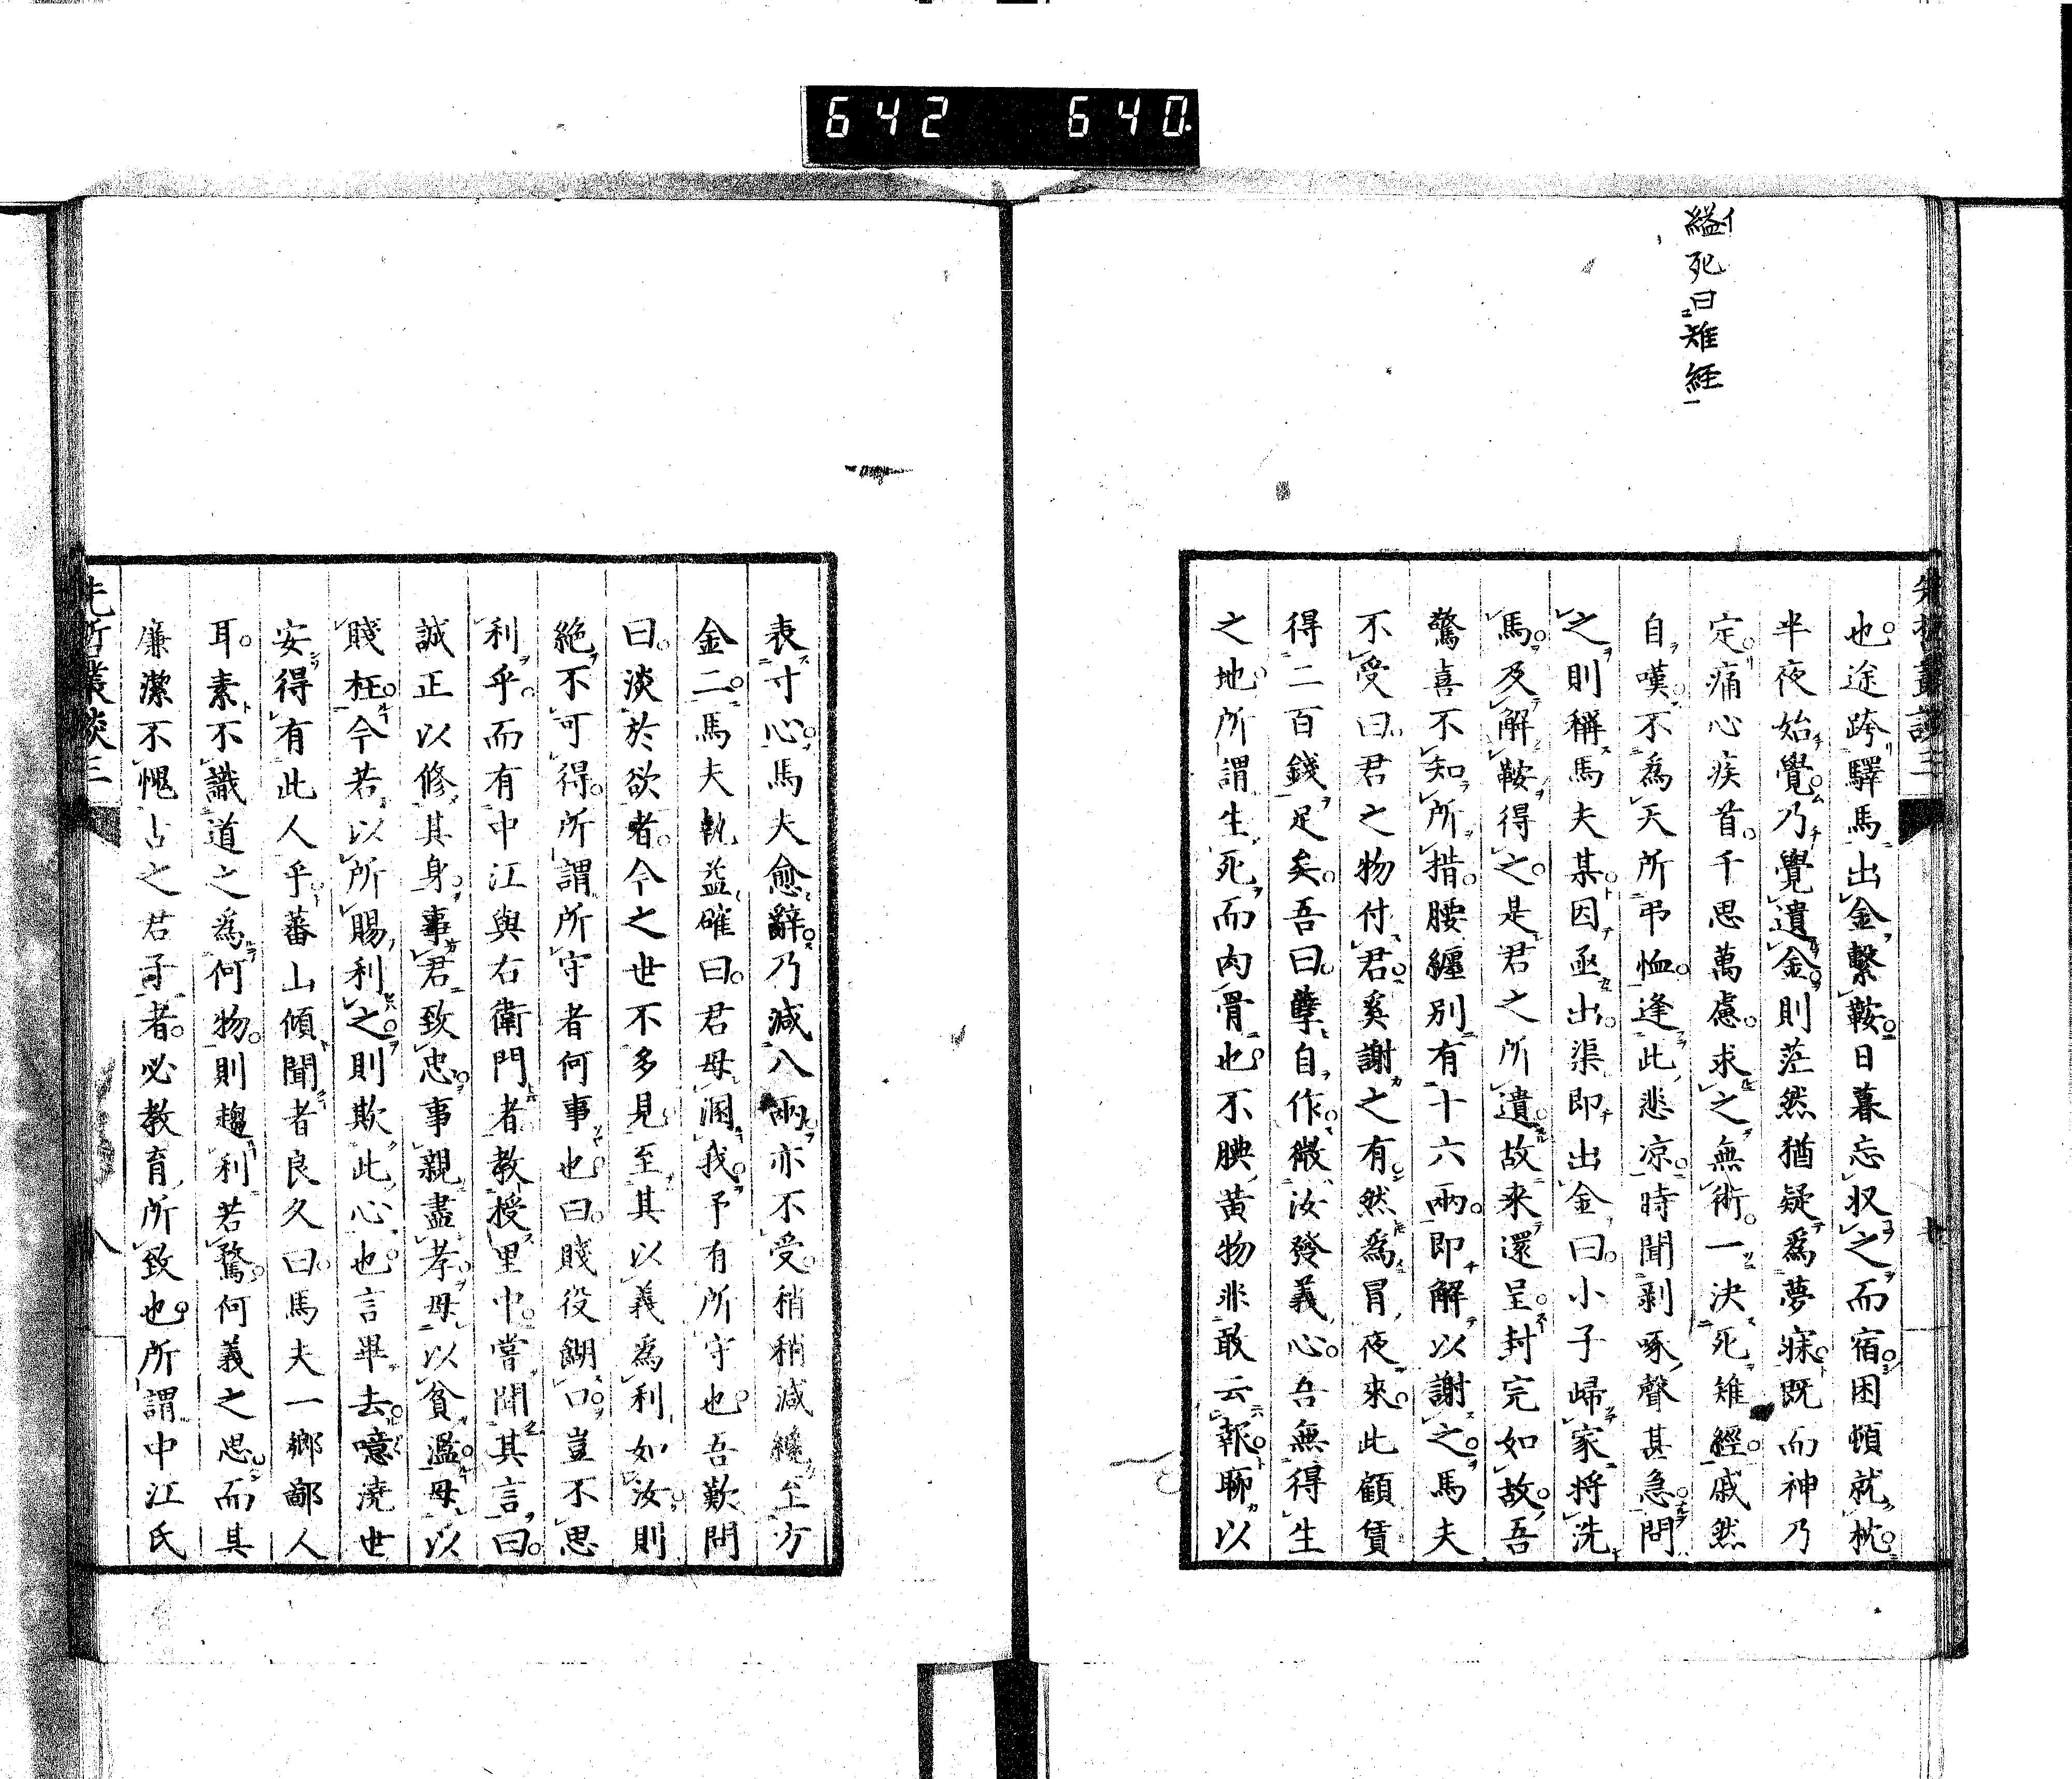 642 640
縊死曰雉經
先哲叢談三
也途跨驛馬出金繫鞍日暮忘収之而宿困頓就枕
半夜始覺乃覺遺金則茫然猶疑爲夢寐既而神乃
定痛心疾首千思萬慮求之無術一決死雉經戚然
自嘆不爲天所弔恤逢此悲凉時聞剥啄聲甚急問
之則稱馬夫某因亟出渠即出金曰小子歸家將洗
馬及解鞍得之是君之所遺故来還呈封完如故吾
驚喜不知所措腰纒別有十六兩即解以謝之馬夫
不受曰君之物付君奚謝之有然爲冒夜來此顧賃
得二百錢足矣吾曰孽自作微汝發義心吾無得生
之地所謂生死而肉骨也不腆黃物非敢云報聊以
七
表寸心馬夫愈辭乃減八兩亦不受稍稍減纔至方
金二馬夫執益確曰君毋溷我予有所守也吾歎問
曰淡於欲者今之世不多見至其以義爲利如汝則
絶不可得所謂所守者何事也曰賤役餬口豈不思
利乎而有中江與右衛門者教授里中嘗聞其言曰
誠正以修其身事君致忠事親盡孝毋以貧濫毋以
賤枉今若以所賜利之則欺此心也言畢去噫澆世
安得有此人乎蕃山傾聞者良久曰馬夫一鄉鄙人
耳素不識道之爲何物則趨利若騖何義之思而其
廉潔不愧古之君子者必教育所致也所謂中江氏
先哲叢談三
八